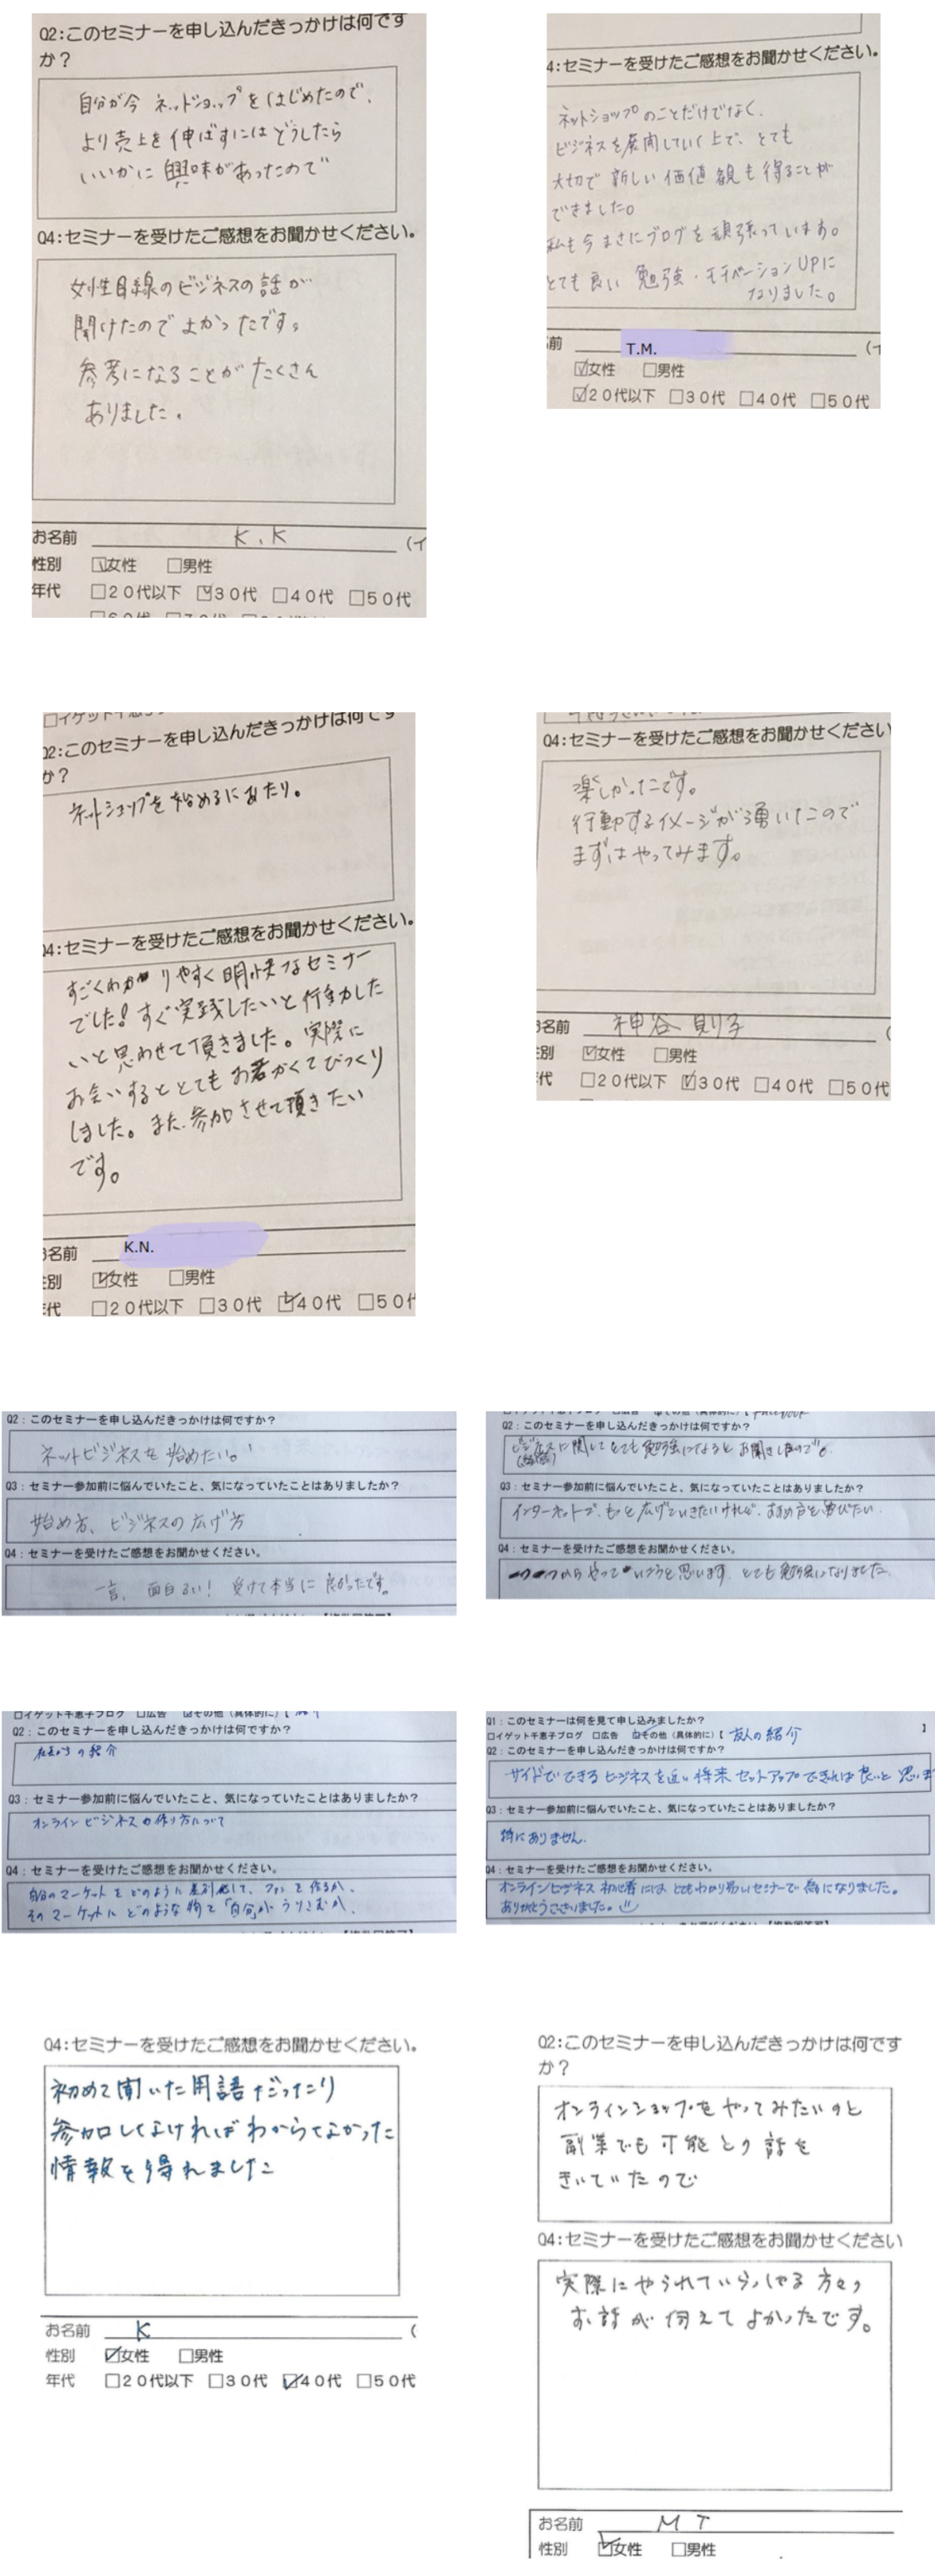 Q2:このセミナーを申し込んだきっかけは何です
か?
自分が今 ネットショップをはじめたので、
より売上を伸ばすにはどうしたら
いいかに興味があったので
Q4:セミナーを受けたご感想をお聞かせください。
女性目線のビジネスの話が
聞けたのでよかったです。
参考になることがたくさん
ありました。
お名前 K.K (イ
性別 女性 男性
年代 20代以下 30代 40代 50代
4:セミナーを受けたご感想をお聞かせください。
ネットショップのことだけでなく、
ビジネスを展開していく上で、とても
大切で 新しい価値観も得ることが
できました。
私も今まさにブログを頑張っています。
とても良い 勉強・モチベーションUPに
なりました。
前 T.M. (イ
女性 男性
20代以下 30代 40代 50代
Q2:このセミナーを申し込んだきっかけは何です
か?
ネットショップを始めるにあたり。
Q4:セミナーを受けたご感想をお聞かせください。
すごくわかりやすく明快なセミナー
でした!すぐ実践したいと行動した
いと思わせて頂きました。実際に
お会いするととてもお若かくてびっくり
しました。また、参加させて頂きたい
です。
名前 K.N.
性別 女性 男性
年代 20代以下 30代 40代 50代
Q4:セミナーを受けたご感想をお聞かせください
楽しかったです。
行動するイメージが湧いたので
まずはやってみます。
名前 神谷 則子 (
別 女性 男性
代 20代以下 30代 40代 50代
Q2:このセミナーを申し込んだきっかけは何ですか?
ネットビジネスを始めたい。
Q3:セミナー参加前に悩んでいたこと、気になっていたことはありましたか?
始め方、ビジネスの広げ方
Q4:セミナーを受けたご感想をお聞かせください。
一言、面白るい! 受けて本当に良かったです。
Facebook
Q2:このセミナーを申し込んだきっかけは何ですか?
ビジネスに関してとても勉強になるとお聞きしたので。
Q3:セミナー参加前に悩んでいたこと、気になっていたことはありましたか?
インターネットで、もっと広げていきたいけれど、すすめ方を学びたい。
Q4:セミナーを受けたご感想をお聞かせください。
からやっていこうと思います。とても勉強になりました。
イゲット千恵子ブログ 広告 その他(具体的に)【
Q2:このセミナーを申し込んだきっかけは何ですか?
の紹介
Q3:セミナー参加前に悩んでいたこと、気になっていたことはありましたか?
オンラインビジネスの作り方について
Q4:セミナーを受けたご感想をお聞かせください。
自分のマーケットをどのように差別化して、ファンを作るか、
そのマーケットにどのような物を「自分」がうりこむか、
Q1:このセミナーは何を見て申し込みましたか?
イゲット千恵子ブログ 広告 その他(具体的に)【 友人の紹介 】
Q2:このセミナーを申し込んだきっかけは何ですか?
サイドでできるビジネスを近い将来セットアップできれば良いと思いま
Q3:セミナー参加前に悩んでいたこと、気になっていたことはありましたか?
特にありません。
Q4:セミナーを受けたご感想をお聞かせください。
オンラインビジネス初心者にはとてもわかり易いセミナーで為になりました。
ありがとうございました。
Q4:セミナーを受けたご感想をお聞かせください。
初めて聞いた用語だったり
参加しなければわからなかった
情報を得れました
お名前 K (
性別 女性 男性
年代 20代以下 30代 40代 50代
Q2:このセミナーを申し込んだきっかけは何です
か?
オンラインショップをやってみたいのと
副業でも可能との話を
きいていたので
Q4:セミナーを受けたご感想をお聞かせください
実際にやられていらっしゃる方々の
お話が伺えてよかったです。
お名前 M T
性別 女性 男性